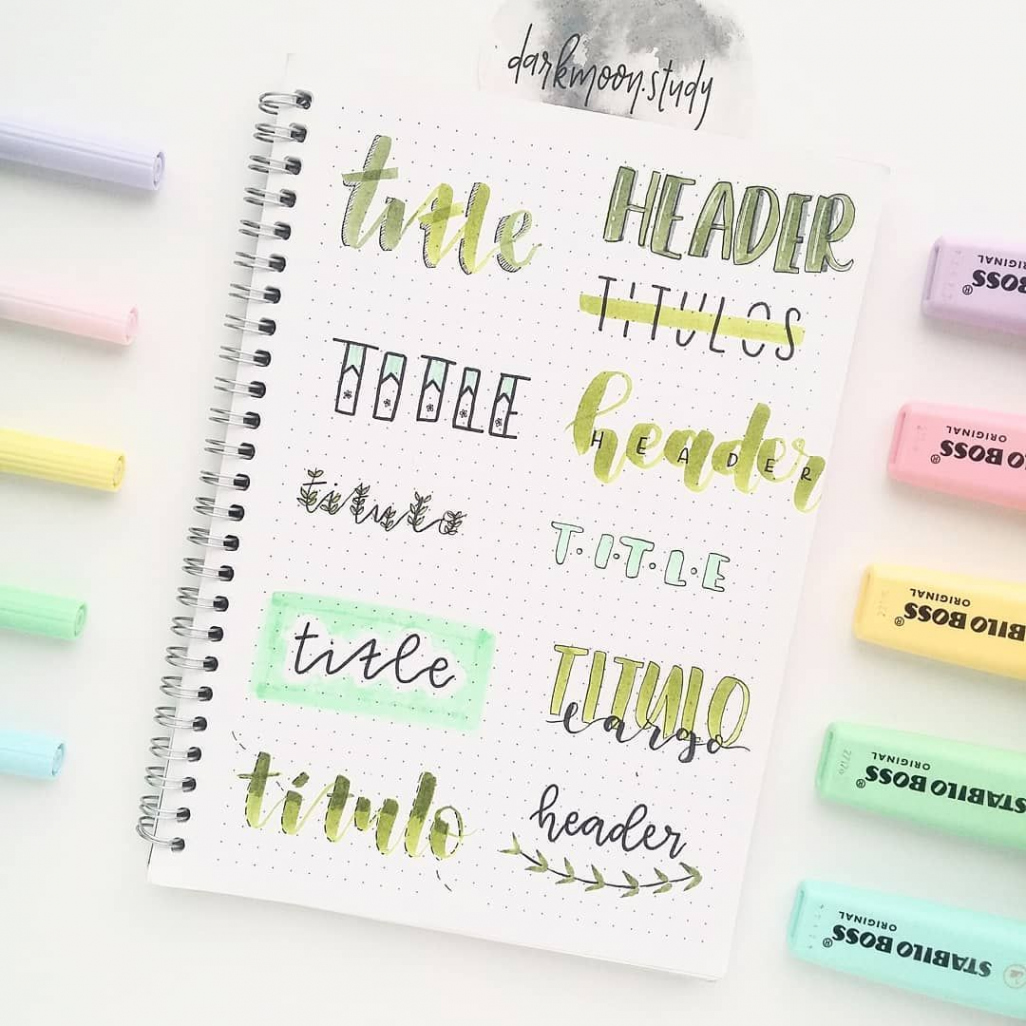 darkmoon.study
title
HEADER
TITULOS
TITLE
header
HEADER
titulo
T·I·T·L·E
title
TITULO
largo
título
header
STABILO BOSS
ORIGINAL
STABILO BOSS
ORIGINAL
STABILO BOSS
ORIGINAL
STABILO BOSS
ORIGINAL
STABILO BOSS
ORIGINAL